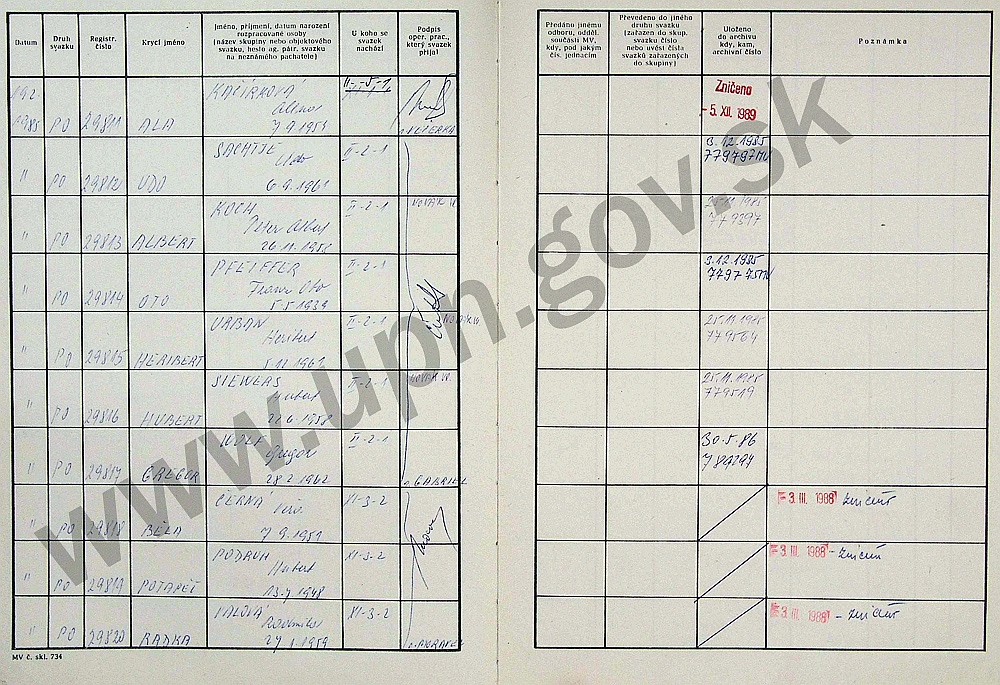 Datum
Druh svazku
Registr. číslo
Krycí jméno
Jméno, příjmení, datum narození rozpracované osoby (název skupiny nebo objektového svazku, heslo ag. pátr. svazku na neznámého pachatele)
U koho se svazek nachází
Podpis oper. prac., který svazek přijal
Předáno jinému odboru, odděl. součásti MV, kdy, pod jakým čís. jednacím
Převedeno do jiného druhu svazku (zařazen do skup. svazku číslo nebo uvésti čísla svazků zařazených do skupiny)
Uloženo do archivu kdy, kam, archivní číslo
Poznámka
1985 PO 29811 ALA
7.9.1951
Zničeno
- 5. XII. 1989
" PO 29812 UDO
Udo
6.9.1961
II-2-1
3.12.1985
" PO 29813 ALBERT
KOCH
Peter Albert
26.11.1958
II-2-1
25.11.1985
779397
" PO 29814 OTO
PFEIFFER
Franz Oto
5.5.1939
II-2-1
3.12.1985
" PO 29815 HERIBERT
URBAN
Heribert
5.11.1961
II-2-1
25.11.1985
779564
" PO 29816 HUBERT
SIEWERS
Hubert
22.6.1958
II-2-1
25.11.1985
779519
" PO 29817 GREGOR
WOLF
Gregor
28.2.1962
II-2-1
GABRIEL
30.5.86
" PO 29818 BĚLA
ČERNÁ
7.9.1951
XI-3-2
- 3. III. 1988 zničen
" PO 29819
PODRUH
Hubert
13.7.1948
XI-3-2
- 3. III. 1988 - zničen
" PO 29820 RADKA
VALOVÁ
1.1959
XI-3-2
- 3. III. 1988 - zničen
MV č. skl. 734
www.upn.gov.sk